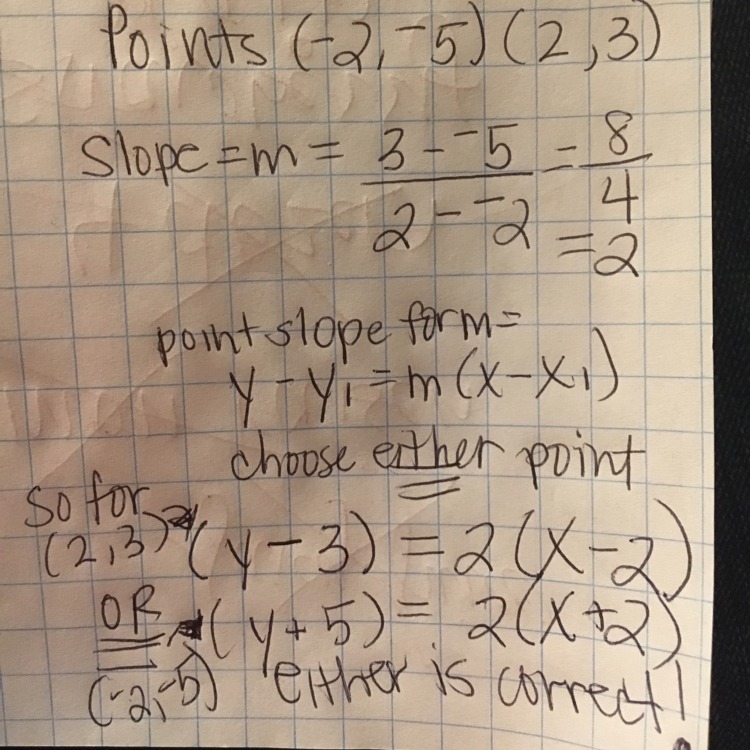 Points (-2, -5) (2, 3)
slope = m = 3 - -5 / 2 - -2 = 8/4
= 2
point slope form =
y - y₁ = m(x - x₁)
choose either point
so for
(2,3) (y - 3) = 2(x - 2)
OR (y + 5) = 2(x + 2)
(-2, -5) either is correct!